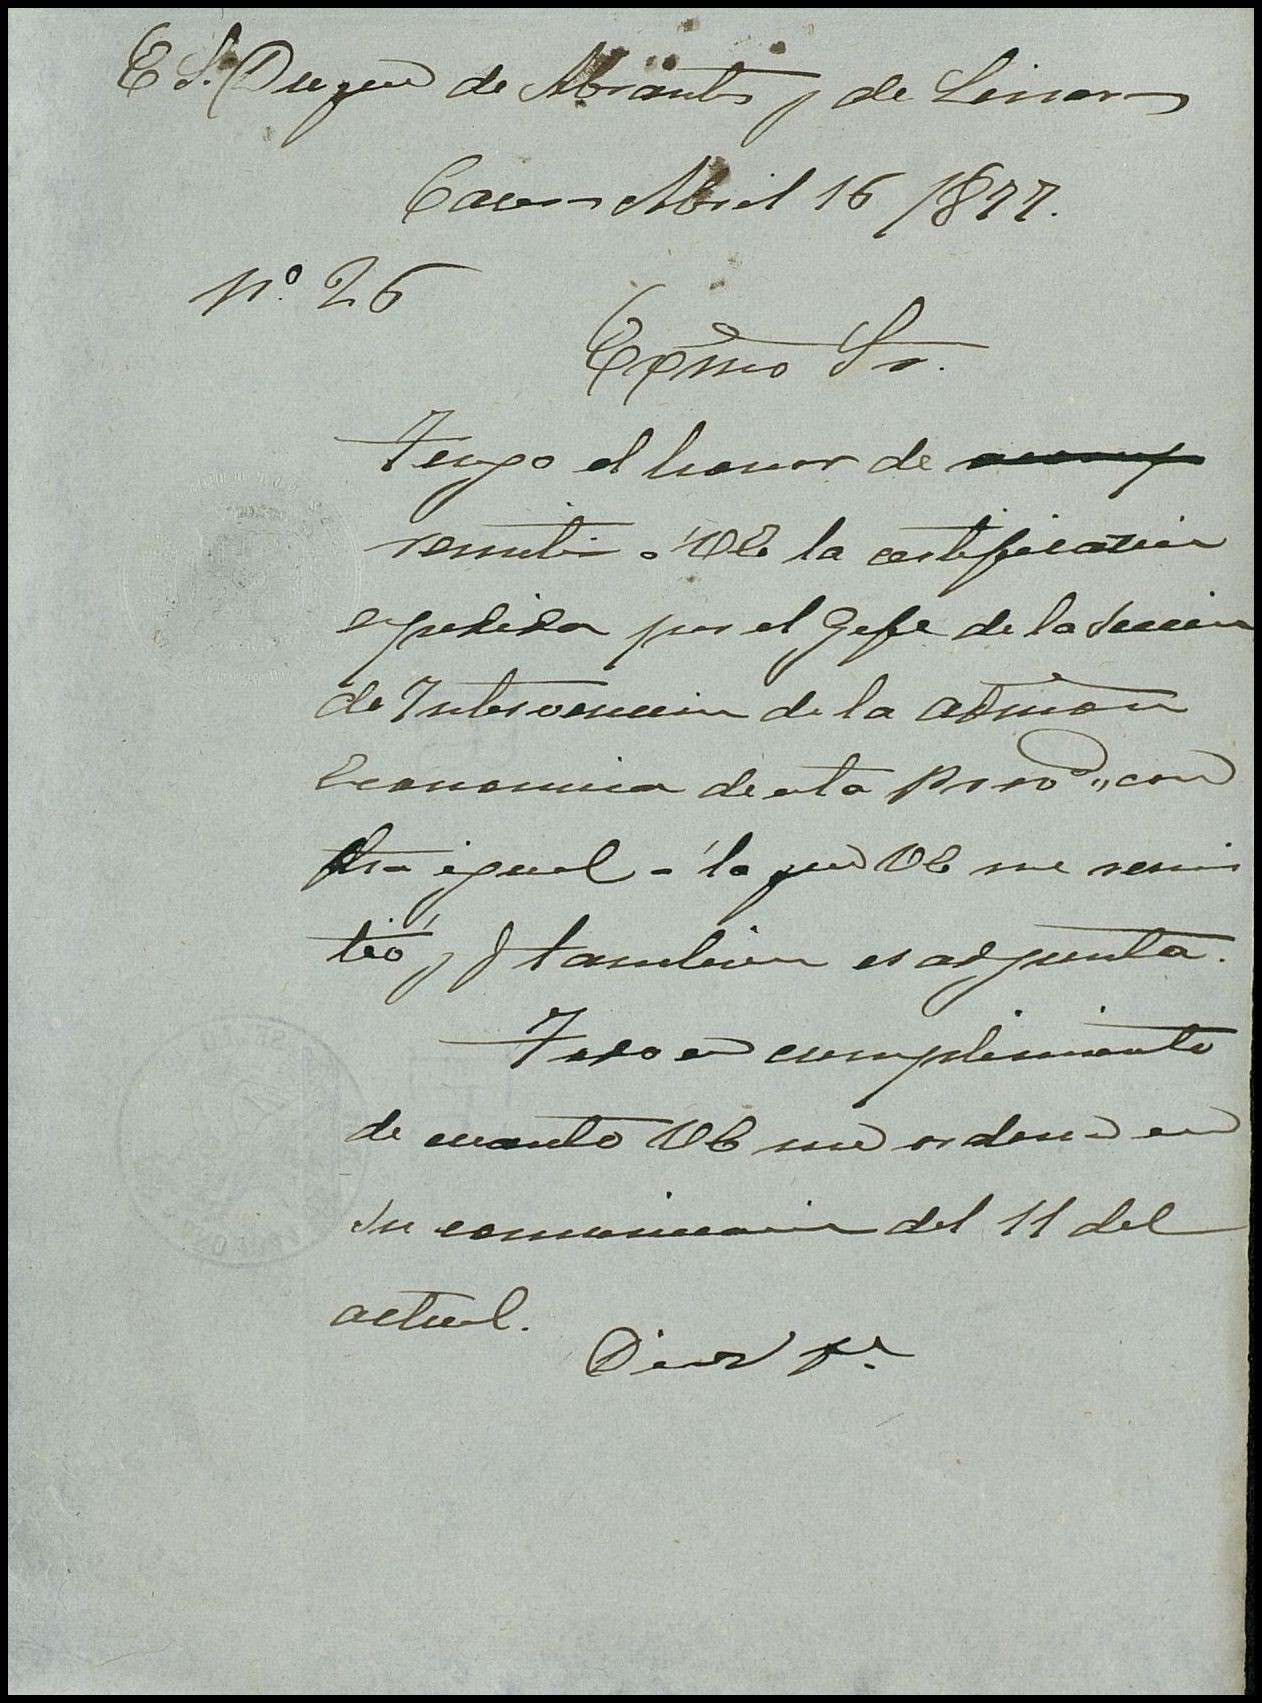 E. S. Duque de Abrantes y de Linares
Caceres Abril 16/1877.
Nº. 26
Exmo Sr.
Tengo el honor de acomp
remitir a VE la certificacion
expedida por el Gefe de la Seccion
de Intervencion de la Admon
Economica de esta Prov.ª, con
otra igual a la que VE me remi
tió, y tambien es adjunta.
Todo en cumplimiento
de cuanto VE me ordena en
su comunicacion del 11 del
actual.
Dios